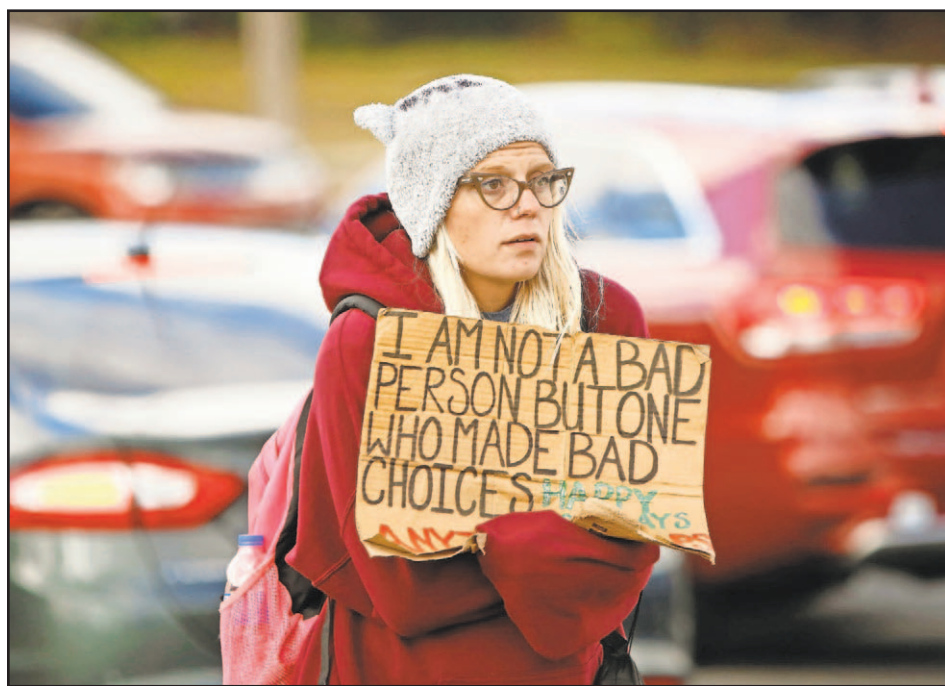 I AM NOT A BAD
PERSON BUT ONE
WHO MADE BAD
CHOICES HAPPY